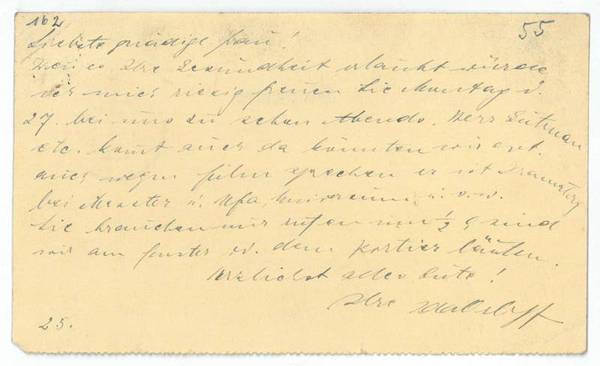 162
55
Liebste gnädige Frau!
Wenn es Ihre Gesundheit erlaubt würde
es mich riesig freuen Sie Montag d.
27. bei uns zu sehen Abends. Herr
etc. kommt auch da könnten wir evt.
auch wegen Film sprechen er ist Dramaturg
bei Messter u. Ufa, u.s.w.
Sie brauchen nur rufen um ½ 9 sind
wir am Fenster od. dem Portier läuten.
Herzlichst alles Gute!
Ihre
25.